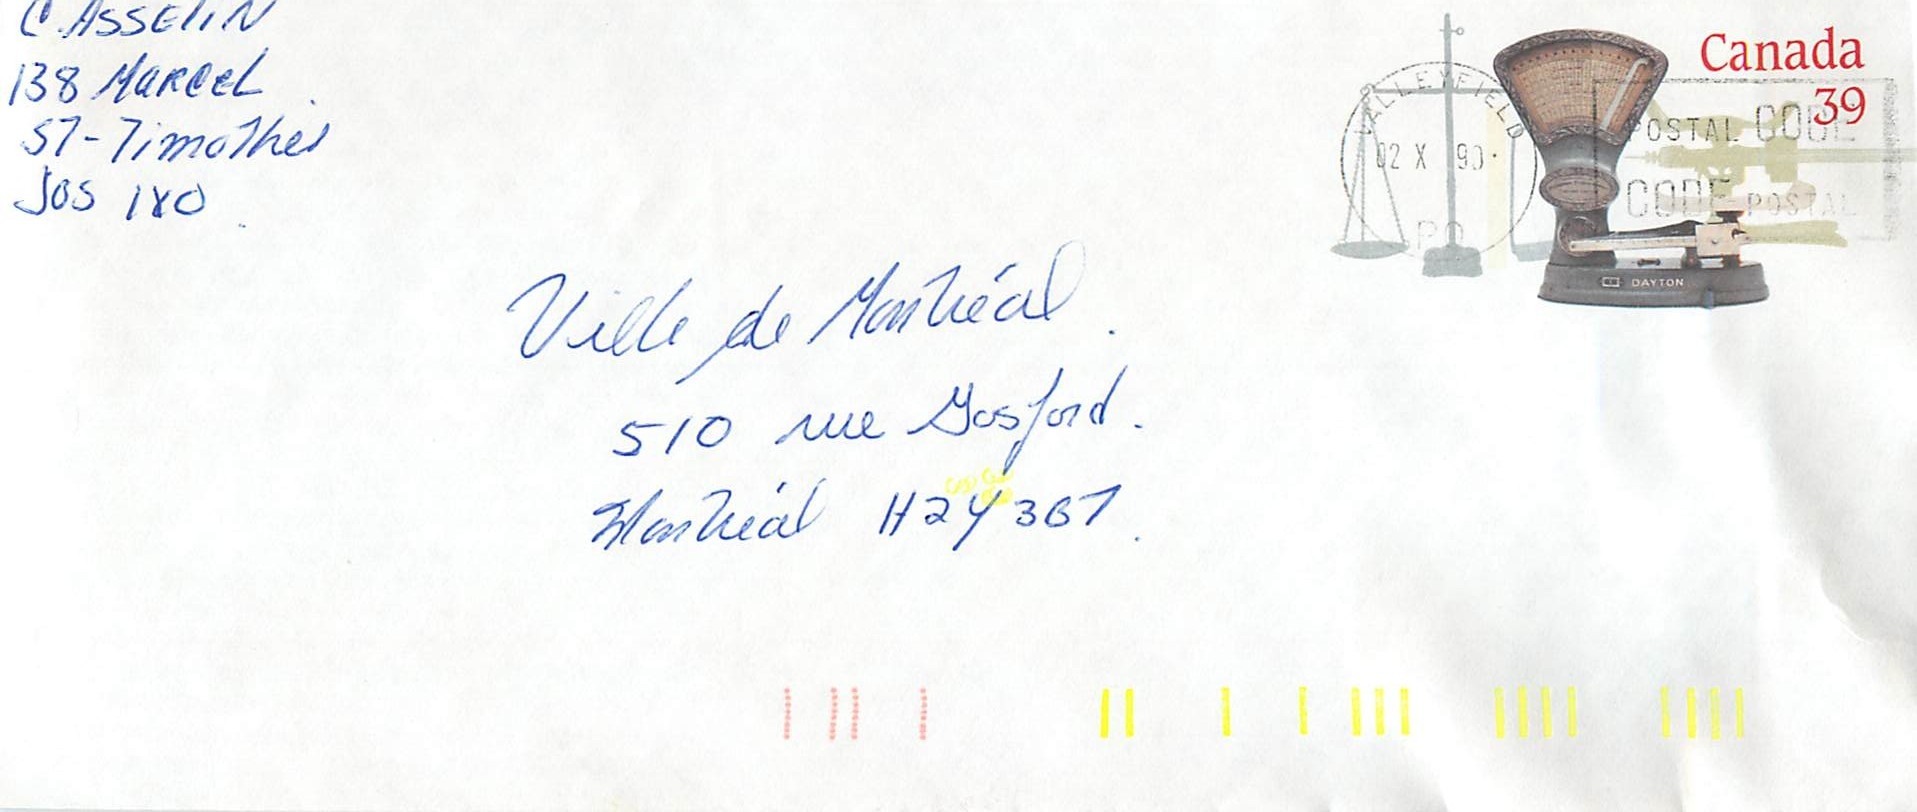 C. ASSELIN
138 MARCEL.
ST-Timothee
JOS 1X0.
Canada
39
VALLEYFIELD
02 X 90
PQ
POSTAL CODE
CODE POSTAL
DAYTON
Ville de Montréal.
510 rue Gosford.
Montréal H2Y 3B7.